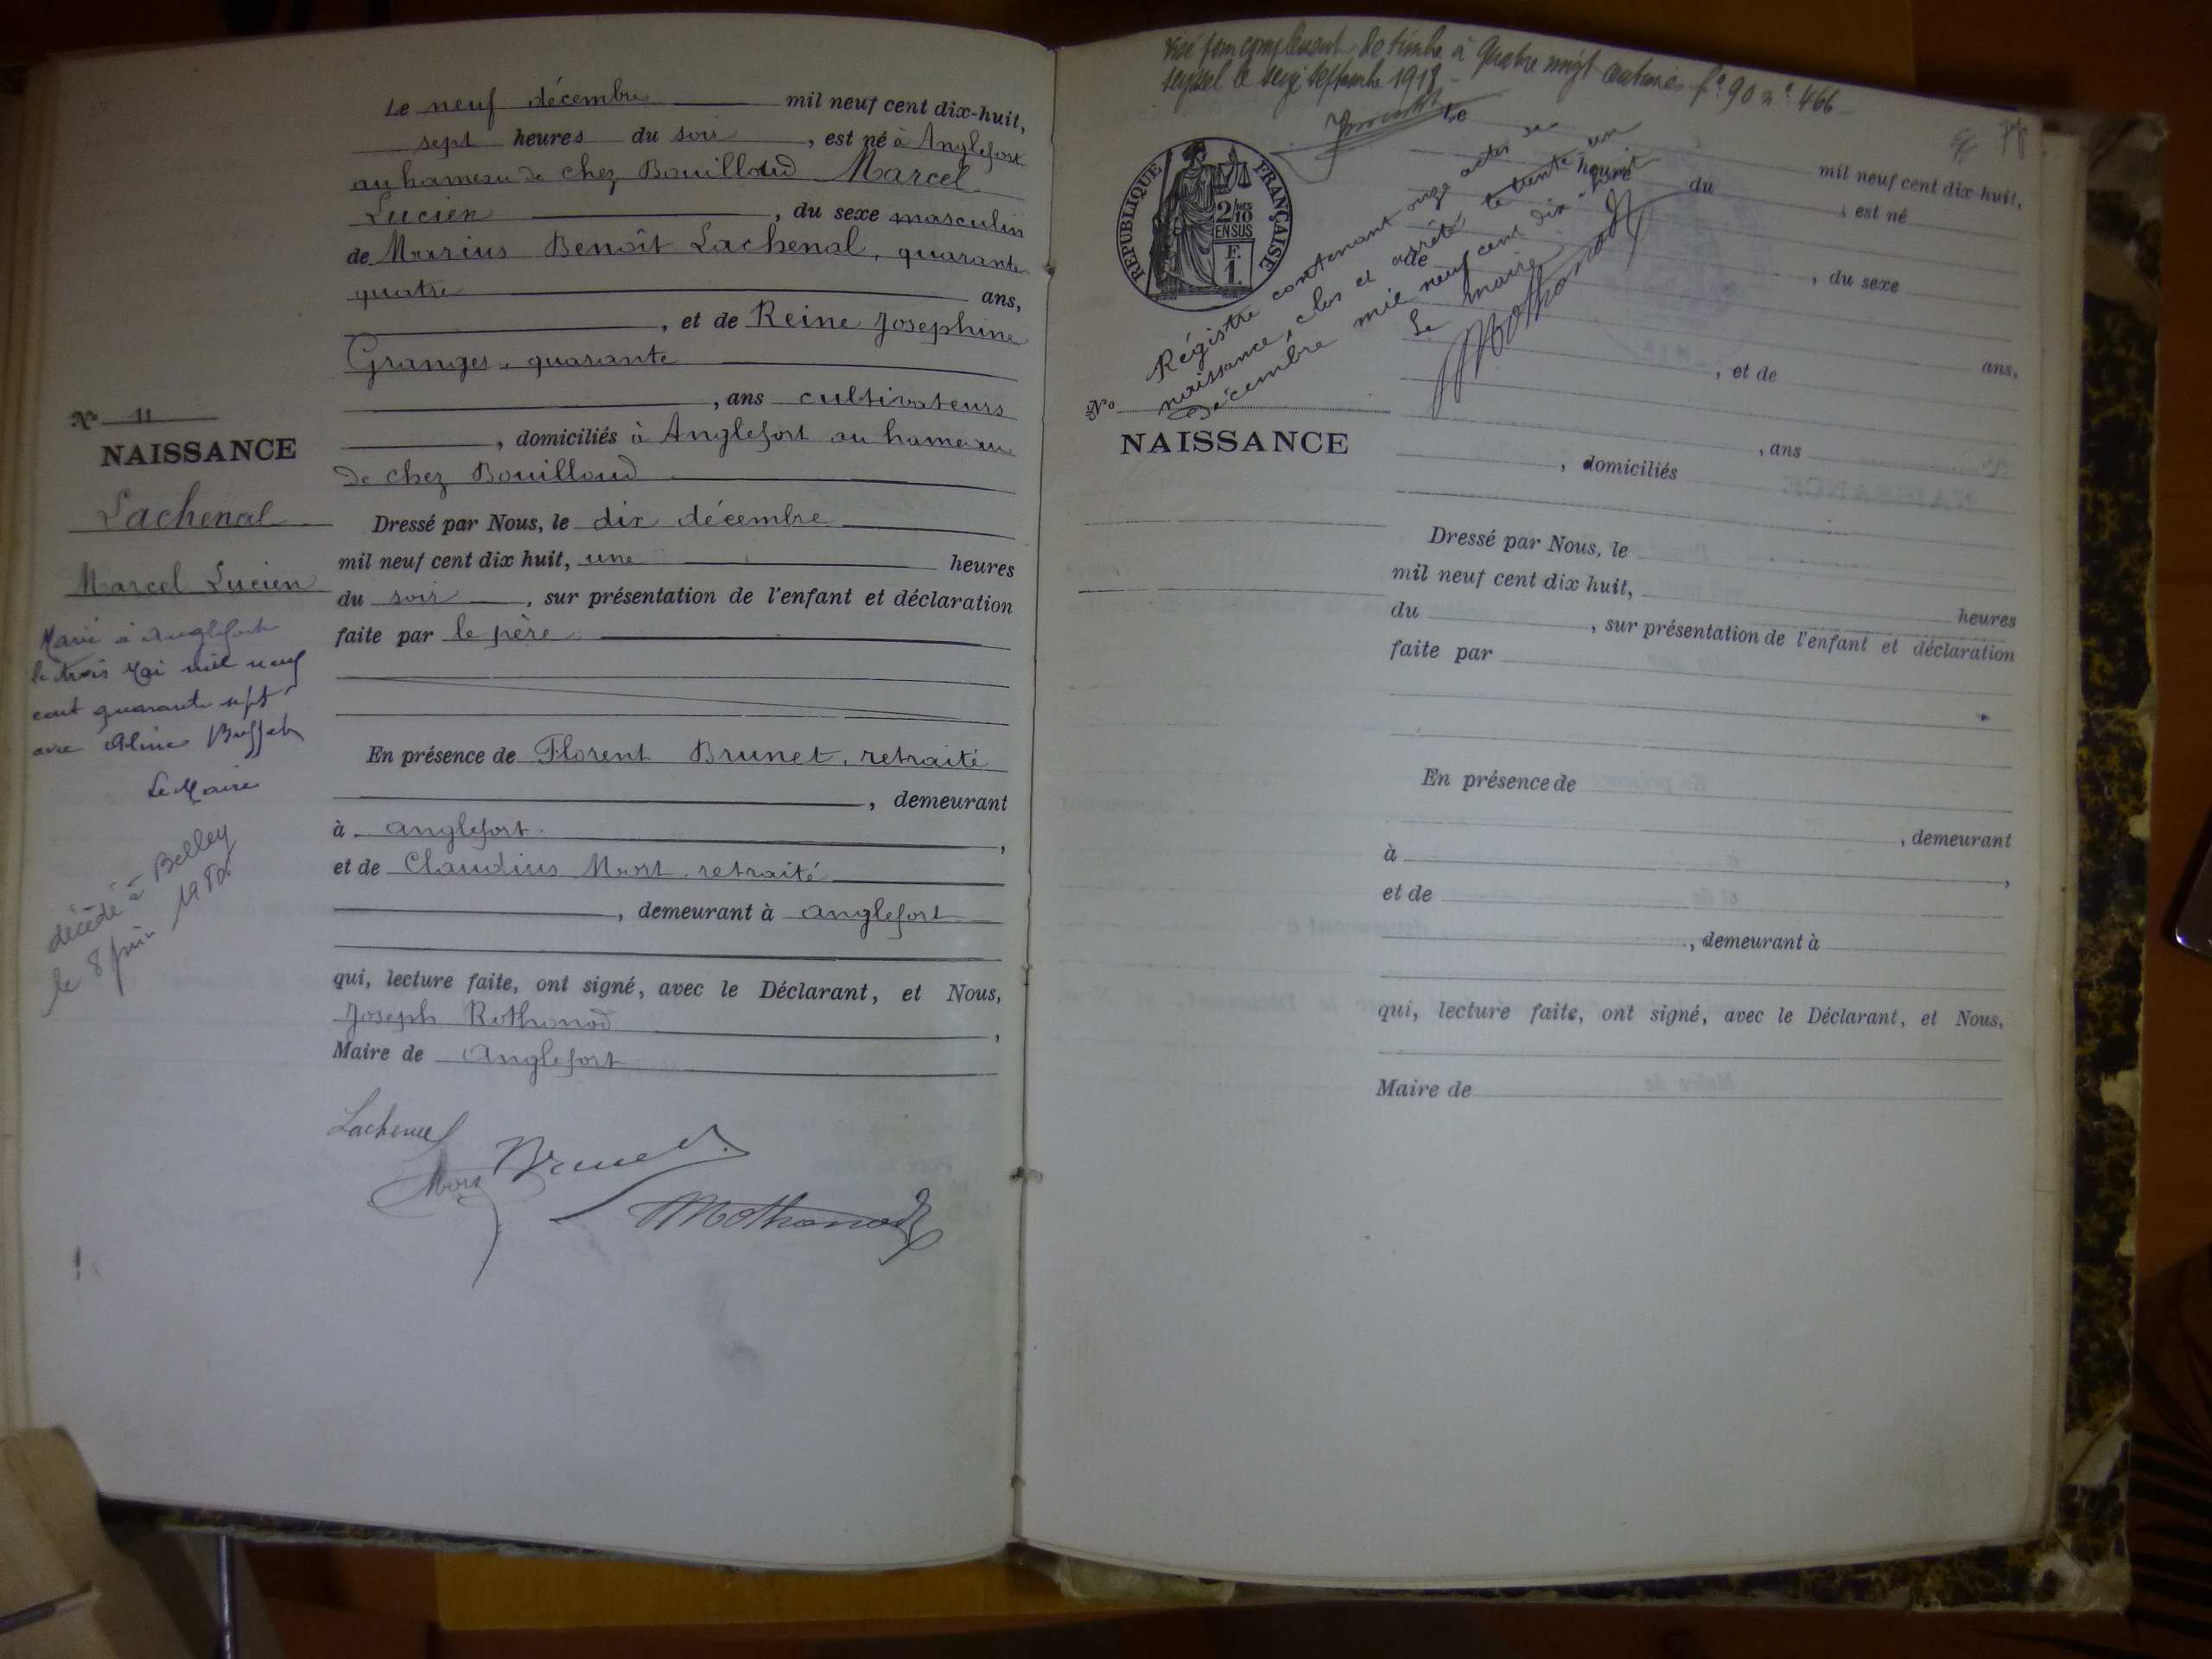 Le neuf décembre mil neuf cent dix-huit,
sept heures du soir, est né à Anglefort
au hameau de chez Bouilloud Marcel
Lucien, du sexe masculin
de Marius Benoît Lachenal, quarante
quatre ans,
, et de Reine Josephine
Granges, quarante
, ans cultivateurs
, domiciliés à Anglefort au hameau
de chez Bouilloud
Dressé par Nous, le dix décembre
mil neuf cent dix huit, une heures
du soir, sur présentation de l'enfant et déclaration
faite par le père
En présence de Florent Brunet, retraité
, demeurant
à anglefort,
et de Claudius Mort, retraité
, demeurant à anglefort
qui, lecture faite, ont signé, avec le Déclarant, et Nous,
Joseph Rothonod,
Maire de Anglefort
Lachenal
Brunet
No 11
NAISSANCE
Lachenal
Marcel Lucien
Marié à Anglefort
le trois Mai mil neuf
cent quarante sept
avec Aline Buffet
Le Maire
décédé à Belley
le 8 juin
visé pour complément de timbre à quatre vingt centimes fo 90 no 466
seyssel le seize septembre 1918
RÉPUBLIQUE FRANÇAISE
2/10
EN SUS
F.
1.
Régistre contenant onze actes de
naissance, clos et arrêté le trente un
décembre mil neuf cent dix-huit
Le maire
No
NAISSANCE
Le mil neuf cent dix-huit,
heure du, est né
, du sexe
de
ans,
, et de
, ans
, domiciliés
Dressé par Nous, le
mil neuf cent dix huit, heures
du, sur présentation de l'enfant et déclaration
faite par
En présence de
, demeurant
à,
et de
, demeurant à
qui, lecture faite, ont signé, avec le Déclarant, et Nous,
Maire de